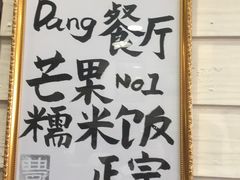 Dang餐厅
芒果No1
糯米饭
正宗